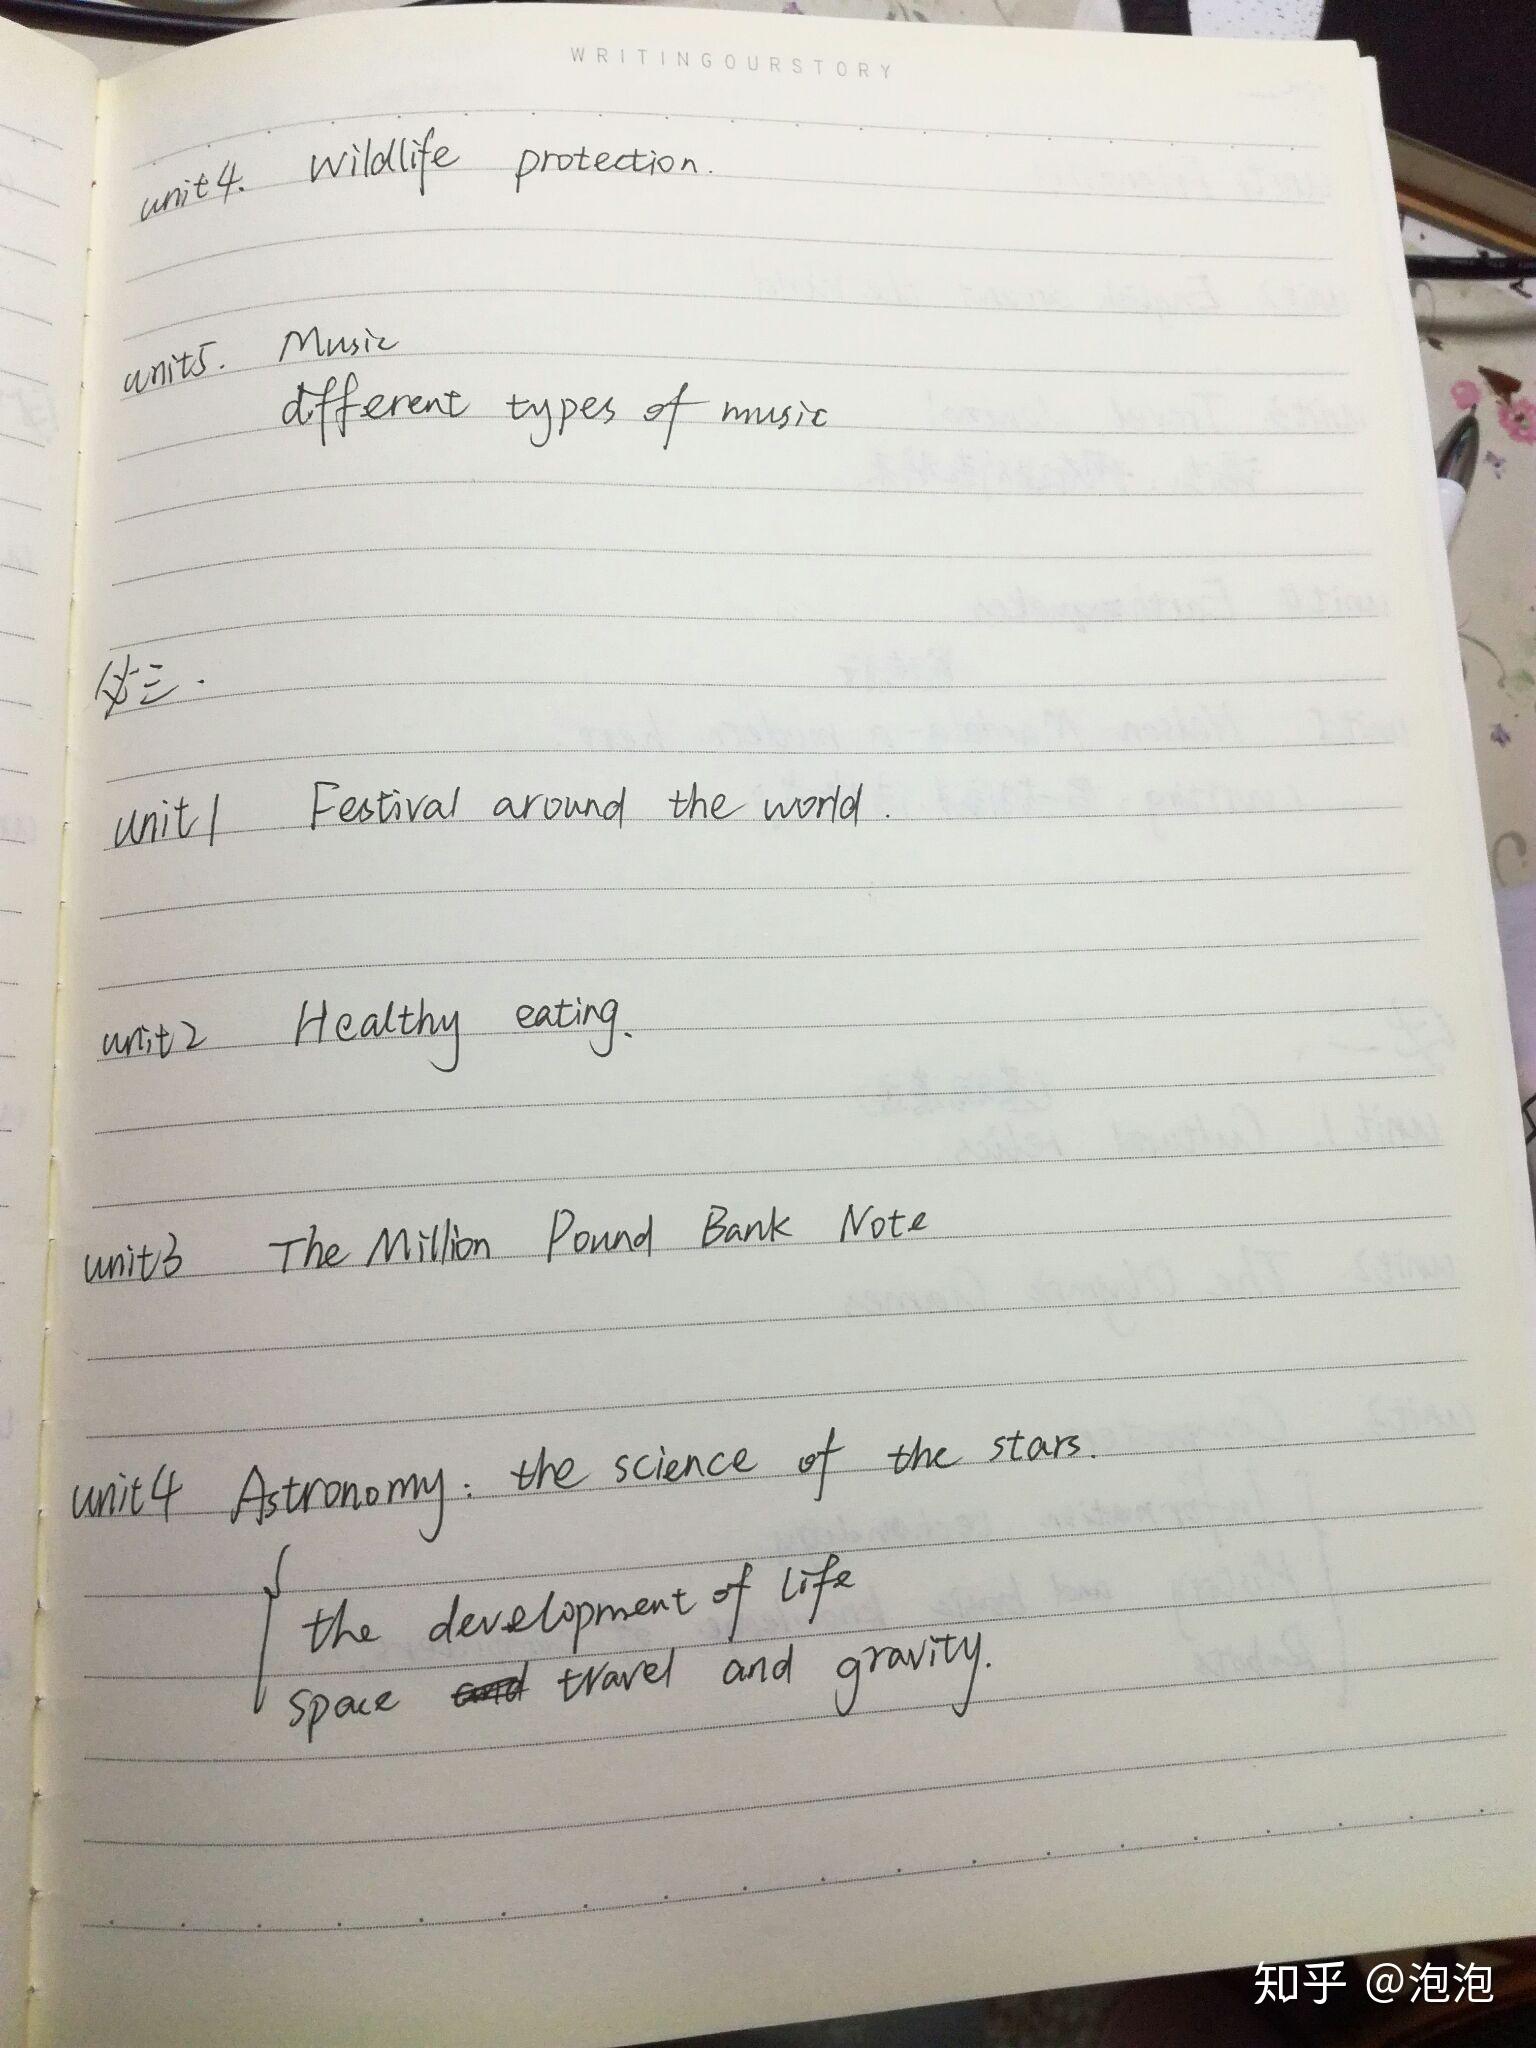 WRITINGOURSTORY
unit4. Wildlife protection.
unit5. Music
different types of music
必三.
unit1 Festival around the world.
unit2 Healthy eating.
unit3 The Million Pound Bank Note
unit4 Astronomy: the science of the stars.
the development of life
space travel and gravity.
知乎 @泡泡